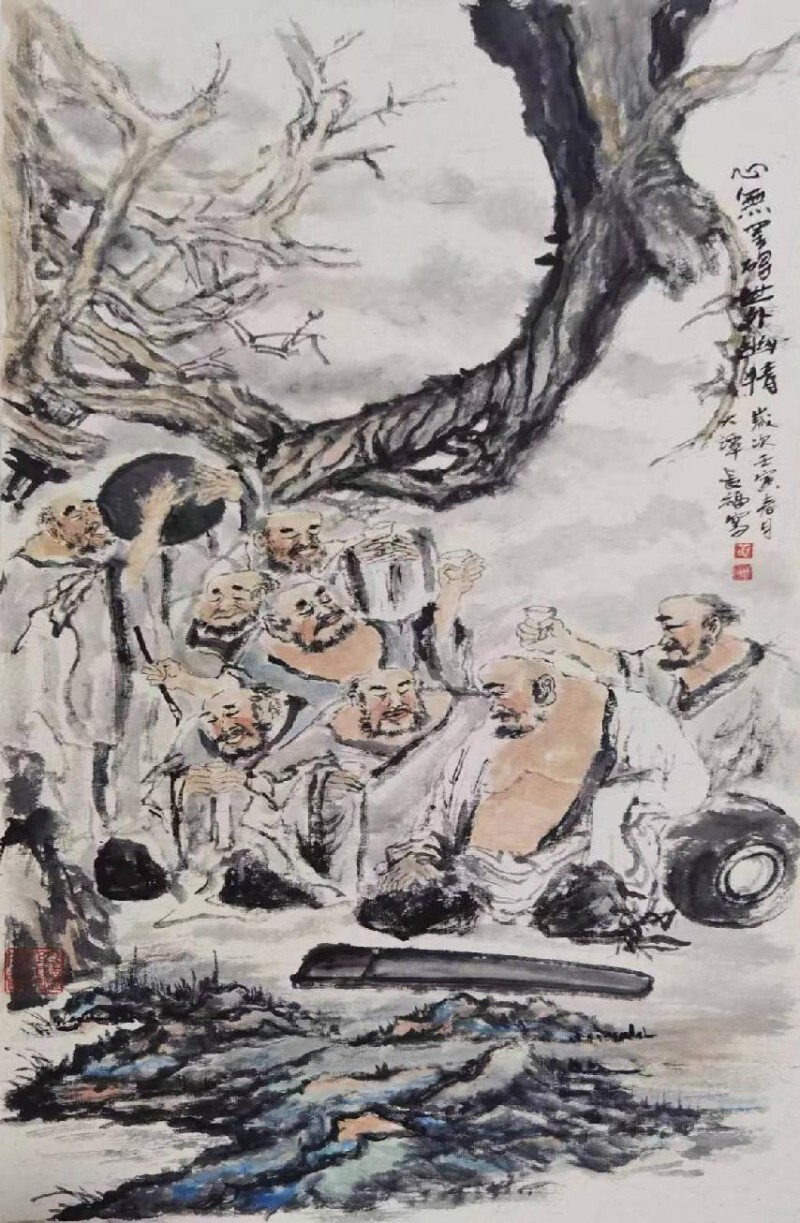 心無罣碍世外幽情
歲次壬寅春月
大澤長福寫